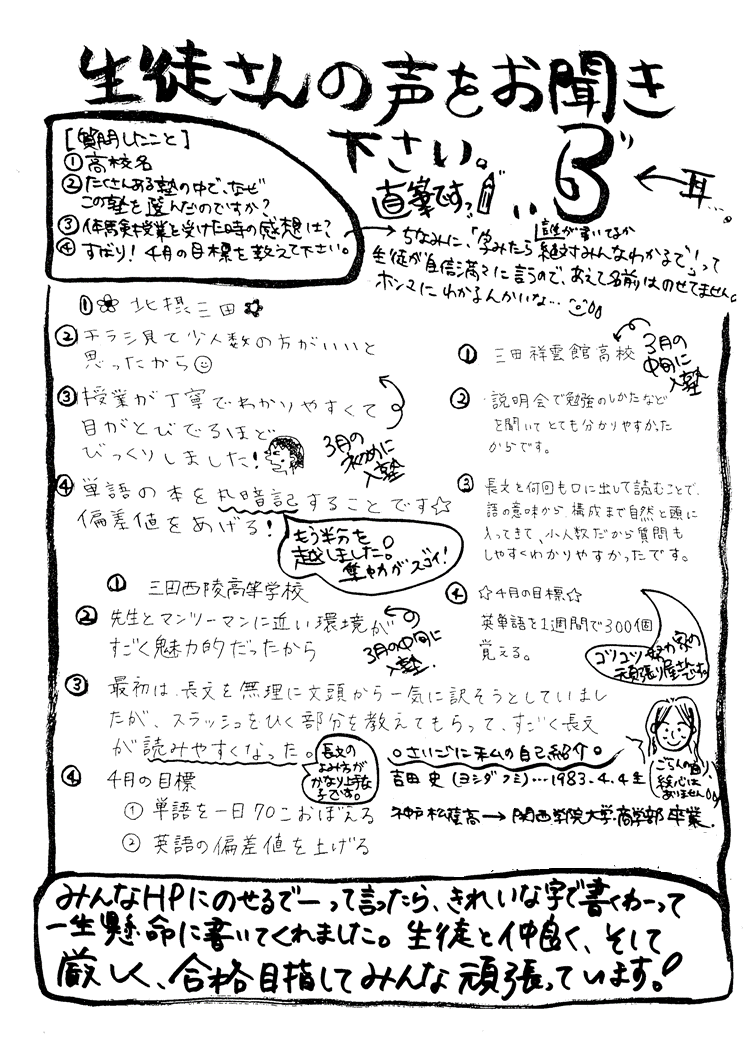 生徒さんの声をお聞き
下さい。
耳…。
[質問したこと]
①高校名
②たくさんある塾の中で、なぜ
この塾を選んだのですか?
③体験授業を受けた時の感想は?
④ずばり!4月の目標を教えて下さい。
直筆です?
ちなみに、「字みたら誰が書いてるか
絶対みんなわかるで!」って
生徒が自信満々に言うので、あえて名前はのせてません。
ホンマにわかるんかいな…
① 北摂三田
② チラシ見て少人数の方がいいと
思ったから
③ 授業が丁寧でわかりやすくて
目がとびでるほど
びっくりしました!
3月の
初めに
入塾
④ 単語の本を丸暗記することです☆
偏差値をあげる!
もう半分を
越しました。
集中力がスゴイ!
① 三田祥雲館高校
3月の
中旬に
入塾
② 説明会で勉強のしかたなど
を聞いてとても分かりやすかった
からです。
③ 長文を何回も口に出して読むことで、
語の意味から、構成まで自然と頭に
入ってきて、少人数だから質問も
しやすくわかりやすかったです。
④ ☆4月の目標☆
英単語を1週間で300個
覚える。
コツコツ努力家の
頑張り屋さんです。
① 三田西陵高等学校
② 先生とマンツーマンに近い環境が
すごく魅力的だったから
3月の中旬に
入塾.
③ 最初は、長文を無理に文頭から一気に訳そうとしていまし
たが、スラッシュをひく部分を教えてもらって、すごく長文
が読みやすくなった。
長文の
よみ方が
かなり上手な
子です。
④ 4月の目標
① 単語を一日70こおぼえる
② 英語の偏差値を上げる
○さいごに私の自己紹介○
吉田 史(ヨシダ フミ)…1983.4.4生
神戸松蔭高→関西学院大学・商学部 卒業.
ごらんの通り、
絵心は
ありません
みんなHPにのせるでーって言ったら、きれいな字で書くわーって
一生懸命に書いてくれました。生徒と仲良く、そして
厳しく、合格目指してみんな頑張っています!